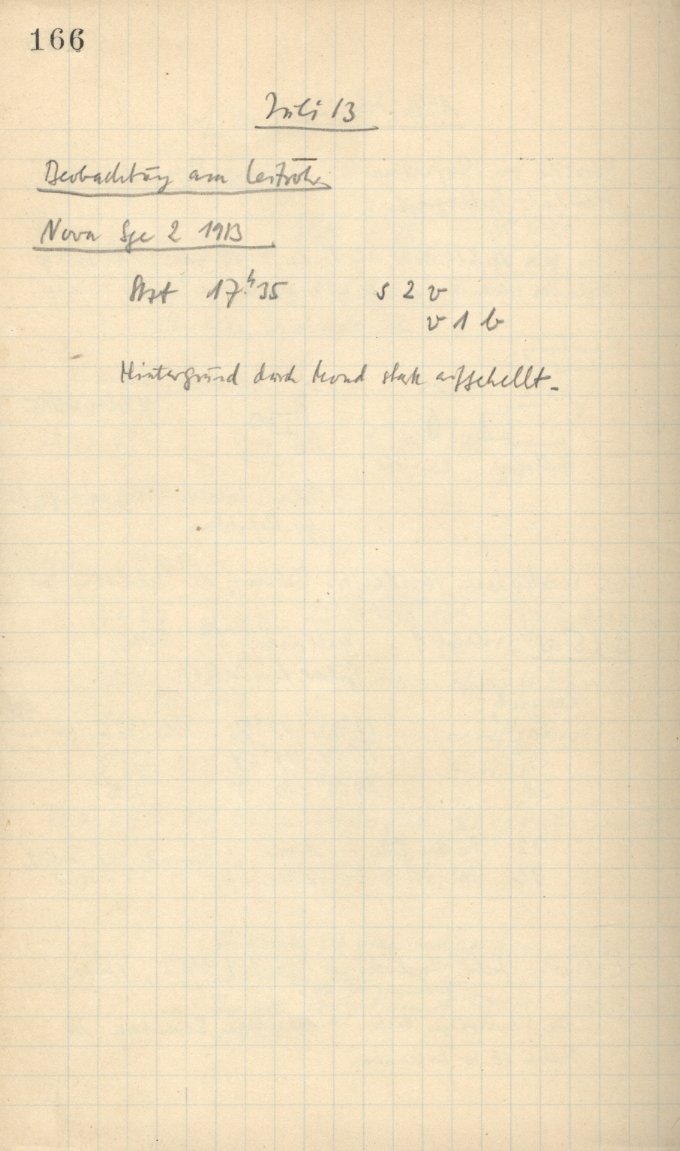 166
Juli 13
Beobachtung am Leitrohr
Nova Sge 2 1913
17.h 35 s 2 v
v 1 b
Hintergrund durch Mond stark aufgehellt.